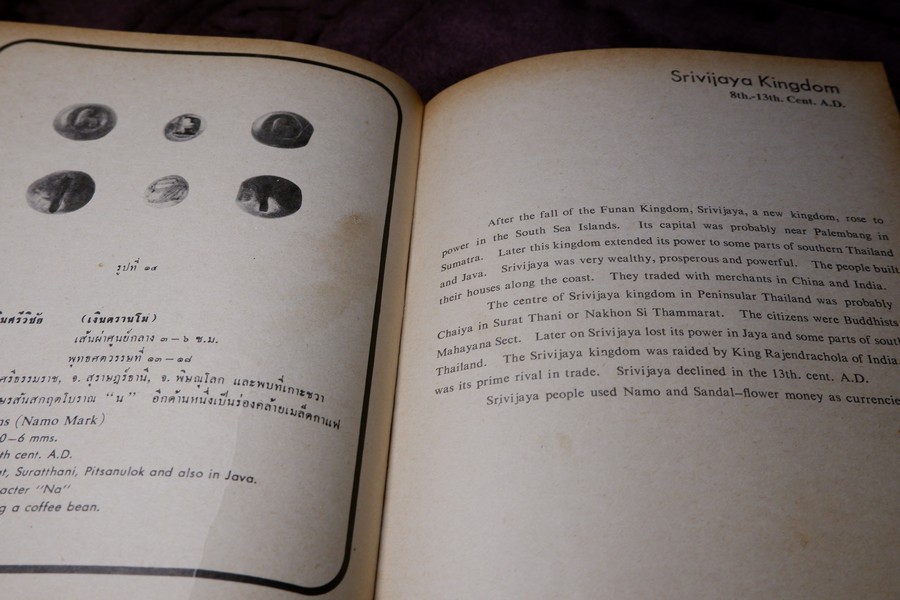 รูปที่ ๑๙
นศรีวิชัย (เงินตรานโม)
เส้นผ่าศูนย์กลาง ๓ – ๖ ซ.ม.
พุทธศตวรรษที่ ๑๓ – ๑๘
ศรีธรรมราช, จ. สุราษฎร์ธานี, จ. พิษณุโลก และพบที่เกาะชวา
ษรสันสกฤตโบราณ “น” อีกด้านหนึ่งเป็นร่องคล้ายเมล็ดกาแฟ
ns (Namo Mark)
0–6 mms.
th cent. A.D.
t, Suratthani, Pitsanulok and also in Java.
acter “Na”
g a coffee bean.
Srivijaya Kingdom
8th.-13th. Cent. A.D.
After the fall of the Funan Kingdom, Srivijaya, a new kingdom, rose to
power in the South Sea Islands. Its capital was probably near Palembang in
Sumatra. Later this kingdom extended its power to some parts of southern Thailand
and Java. Srivijaya was very wealthy, prosperous and powerful. The people built
their houses along the coast. They traded with merchants in China and India.
The centre of Srivijaya kingdom in Peninsular Thailand was probably
Chaiya in Surat Thani or Nakhon Si Thammarat. The citizens were Buddhists
Mahayana Sect. Later on Srivijaya lost its power in Jaya and some parts of sout
Thailand. The Srivijaya kingdom was raided by King Rajendrachola of India
was its prime rival in trade. Srivijaya declined in the 13th. cent. A.D.
Srivijaya people used Namo and Sandal–flower money as currencie